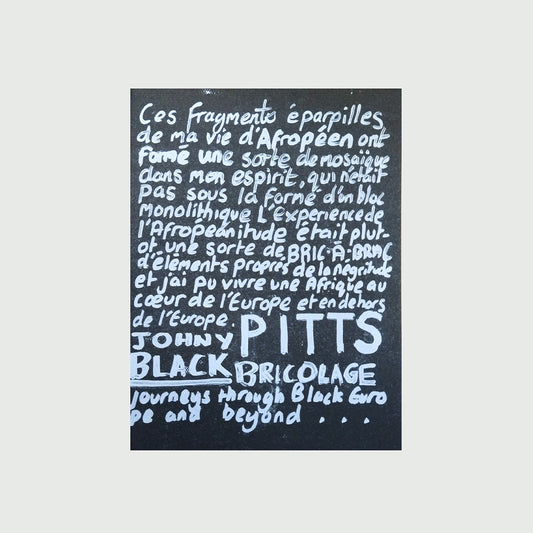 Ces fragments éparpilles
de ma vie d'Afropéen ont
formé une sorte de mosaïque
dans mon esprit, qui n'était
pas sous la formé d'un bloc
monolithique L'Experience de
l'Afropéanitude était plut-
ot une sorte de BRIC-À-BRAC
d'éléments propres de la Négritude
et j'ai pu vivre une Afrique au
cœur de l'Europe et en dehors
de l'Europe.
JOHNY PITTS
BLACK BRICOLAGE
Journeys through Black Euro
pe and beyond . . .